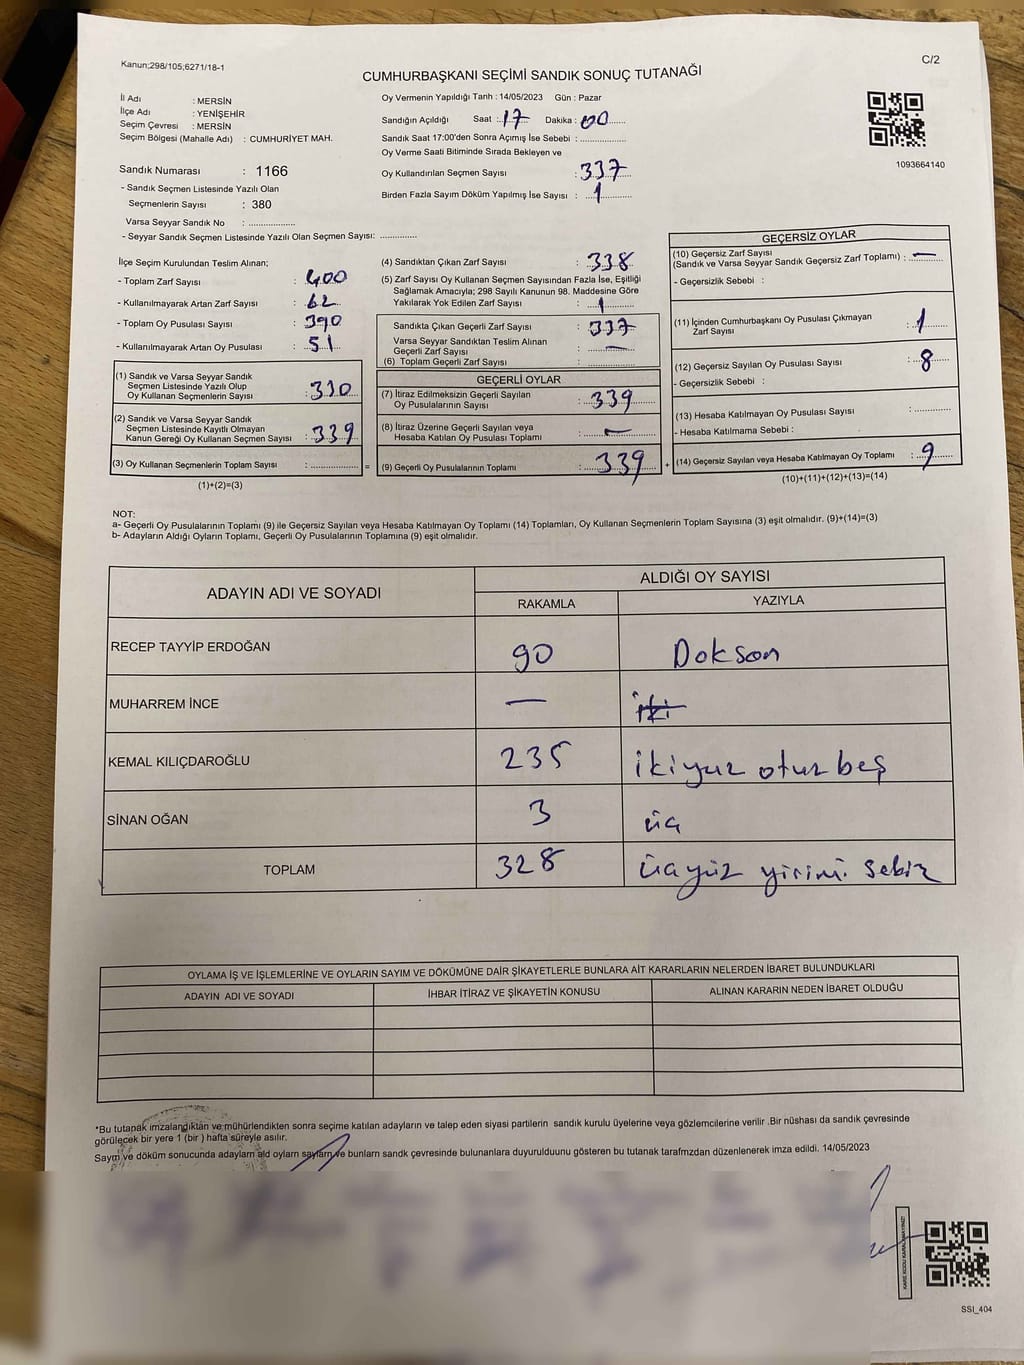 Kanun;298/105;6271/18-1
C/2
CUMHURBAŞKANI SEÇİMİ SANDIK SONUÇ TUTANAĞI
İl Adı : MERSİN
İlçe Adı : YENİŞEHİR
Seçim Çevresi : MERSİN
Seçim Bölgesi (Mahalle Adı) : CUMHURİYET MAH.
Sandık Numarası : 1166
- Sandık Seçmen Listesinde Yazılı Olan
Seçmenlerin Sayısı : 380
Varsa Seyyar Sandık No : ..................
- Seyyar Sandık Seçmen Listesinde Yazılı Olan Seçmen Sayısı: ..............
Oy Vermenin Yapıldığı Tarih : 14/05/2023 Gün : Pazar
Sandığın Açıldığı Saat : 17 Dakika : 00
Sandık Saat 17:00'den Sonra Açımış İse Sebebi : ....................
Oy Verme Saati Bitiminde Sırada Bekleyen ve
Oy Kullandırılan Seçmen Sayısı : 337
Birden Fazla Sayım Döküm Yapılmış İse Sayısı : 1
1093664140
İlçe Seçim Kurulundan Teslim Alınan;
- Toplam Zarf Sayısı : 400
- Kullanılmayarak Artan Zarf Sayısı : 62
- Toplam Oy Pusulası Sayısı : 390
- Kullanılmayarak Artan Oy Pusulası : 51
(1) Sandık ve Varsa Seyyar Sandık
Seçmen Listesinde Yazılı Olup
Oy Kullanan Seçmenlerin Sayısı : 330
(2) Sandık ve Varsa Seyyar Sandık
Seçmen Listesinde Kayıtlı Olmayan
Kanun Gereği Oy Kullanan Seçmen Sayısı : 339
(3) Oy Kullanan Seçmenlerin Toplam Sayısı : ....................
(1)+(2)=(3)
=
(4) Sandıktan Çıkan Zarf Sayısı : 338
(5) Zarf Sayısı Oy Kullanan Seçmen Sayısından Fazla İse, Eşitliği
Sağlamak Amacıyla; 298 Sayılı Kanunun 98. Maddesine Göre
Yakılarak Yok Edilen Zarf Sayısı : 1
Sandıkta Çıkan Geçerli Zarf Sayısı : 337
Varsa Seyyar Sandıktan Teslim Alınan
Geçerli Zarf Sayısı : —
(6) Toplam Geçerli Zarf Sayısı : ....................
GEÇERLİ OYLAR
(7) İtiraz Edilmeksizin Geçerli Sayılan
Oy Pusulalarının Sayısı : 339
(8) İtiraz Üzerine Geçerli Sayılan veya
Hesaba Katılan Oy Pusulası Toplamı : —
(9) Geçerli Oy Pusulalarının Toplamı : 339
+
GEÇERSİZ OYLAR
(10) Geçersiz Zarf Sayısı
(Sandık ve Varsa Seyyar Sandık Geçersiz Zarf Toplamı) : —
- Geçersizlik Sebebi :
(11) İçinden Cumhurbaşkanı Oy Pusulası Çıkmayan
Zarf Sayısı : 1
(12) Geçersiz Sayılan Oy Pusulası Sayısı : 8
- Geçersizlik Sebebi :
(13) Hesaba Katılmayan Oy Pusulası Sayısı : ..............
- Hesaba Katılmama Sebebi :
(14) Geçersiz Sayılan veya Hesaba Katılmayan Oy Toplamı : 9
(10)+(11)+(12)+(13)=(14)
NOT:
a- Geçerli Oy Pusulalarının Toplamı (9) ile Geçersiz Sayılan veya Hesaba Katılmayan Oy Toplamı (14) Toplamları, Oy Kullanan Seçmenlerin Toplam Sayısına (3) eşit olmalıdır. (9)+(14)=(3)
b- Adayların Aldığı Oyların Toplamı, Geçerli Oy Pusulalarının Toplamına (9) eşit olmalıdır.
ADAYIN ADI VE SOYADI
ALDIĞI OY SAYISI
RAKAMLA YAZIYLA
RECEP TAYYİP ERDOĞAN 90 Dokson
MUHARREM İNCE — iki
KEMAL KILIÇDAROĞLU 235 ikiyuz otuz beş
SİNAN OĞAN 3 üç
TOPLAM 328 üçyüz yirimi sebiz
OYLAMA İŞ VE İŞLEMLERİNE VE OYLARIN SAYIM VE DÖKÜMÜNE DAİR ŞİKAYETLERLE BUNLARA AİT KARARLARIN NELERDEN İBARET BULUNDUKLARI
ADAYIN ADI VE SOYADI İHBAR İTİRAZ VE ŞİKAYETİN KONUSU ALINAN KARARIN NEDEN İBARET OLDUĞU
*Bu tutapak imzalandıktan ve mühürlendikten sonra seçime katılan adayların ve talep eden siyasi partilerin sandık kurulu üyelerine veya gözlemcilerine verilir .Bir nüshası da sandık çevresinde
görülecek bir yere 1 (bir ) hafta süreyle asılır.
Sayım ve döküm sonucunda adayların ald oyların sayların ve bunların sandk çevresinde bulunanlara duyurulduunu gösteren bu tutanak tarafmzdan düzenlenerek imza edildi. 14/05/2023
SSI_404